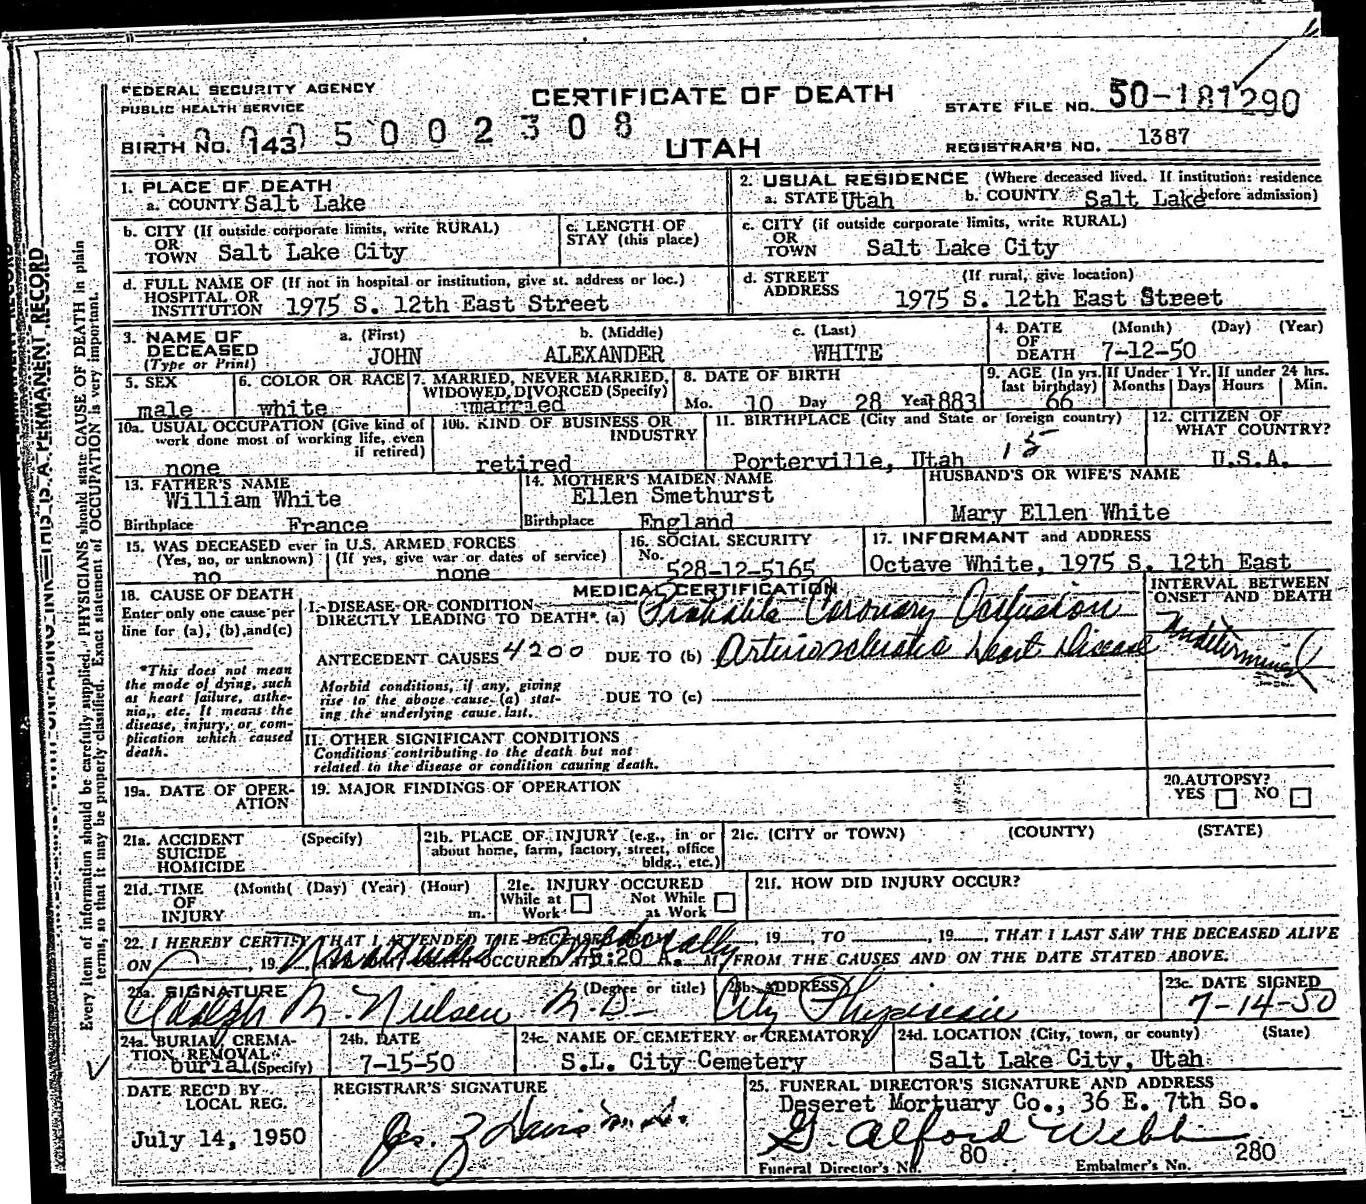 FEDERAL SECURITY AGENCY
PUBLIC HEALTH SERVICE
CERTIFICATE OF DEATH
UTAH
STATE FILE NO. 50-181290
BIRTH NO. 143 0 5 0 0 2 3 0 8
REGISTRAR'S NO. 1387
1. PLACE OF DEATH
a. COUNTY Salt Lake
2. USUAL RESIDENCE (Where deceased lived. If institution: residence before admission)
a. STATE Utah b. COUNTY Salt Lake
b. CITY (If outside corporate limits, write RURAL)
OR
TOWN Salt Lake City
c. LENGTH OF
STAY (this place)
c. CITY (if outside corporate limits, write RURAL)
OR
TOWN Salt Lake City
d. FULL NAME OF (If not in hospital or institution, give st. address or loc.)
HOSPITAL OR
INSTITUTION 1975 S. 12th East Street
d. STREET (If rural, give location)
ADDRESS 1975 S. 12th East Street
3. NAME OF DECEASED
(Type or Print)
a. (First) b. (Middle) c. (Last)
JOHN ALEXANDER WHITE
4. DATE (Month) (Day) (Year)
OF
DEATH 7-12-50
5. SEX
male
6. COLOR OR RACE
white
7. MARRIED, NEVER MARRIED,
WIDOWED, DIVORCED (Specify)
married
8. DATE OF BIRTH
Mo. 10 Day 28 Year 1883
9. AGE (In yrs. last birthday) 66
If Under 1 Yr. Months Days
If under 24 hrs. Hours Min.
10a. USUAL OCCUPATION (Give kind of
work done most of working life, even
if retired)
none
10b. KIND OF BUSINESS OR
INDUSTRY
retired
11. BIRTHPLACE (City and State or foreign country)
Porterville, Utah 15
12. CITIZEN OF
WHAT COUNTRY?
U.S.A.
13. FATHER'S NAME
William White
Birthplace France
14. MOTHER'S MAIDEN NAME
Ellen Smethurst
Birthplace England
HUSBAND'S OR WIFE'S NAME
Mary Ellen White
15. WAS DECEASED ever in U.S. ARMED FORCES
(Yes, no, or unknown) (If yes, give war or dates of service)
no none
16. SOCIAL SECURITY
No. 528-12-5165
17. INFORMANT and ADDRESS
Octave White, 1975 S. 12th East
18. CAUSE OF DEATH
Enter only one cause per
line for (a), (b), and (c)
*This does not mean
the mode of dying, such
as heart failure, asthe-
nia, etc. It means the
disease, injury, or com-
plication which caused
death.
MEDICAL CERTIFICATION
I. DISEASE OR CONDITION
DIRECTLY LEADING TO DEATH* (a) Probable Coronary Occlusion
ANTECEDENT CAUSES 4200 DUE TO (b) Arteriosclerotic Heart Disease
Morbid conditions, if any, giving
rise to the above cause (a) stat-
ing the underlying cause last.
DUE TO (c)
INTERVAL BETWEEN
ONSET AND DEATH
Undetermined
II. OTHER SIGNIFICANT CONDITIONS
Conditions contributing to the death but not
related to the disease or condition causing death.
19a. DATE OF OPER-
ATION
19. MAJOR FINDINGS OF OPERATION
20. AUTOPSY?
YES NO
21a. ACCIDENT (Specify)
SUICIDE
HOMICIDE
21b. PLACE OF INJURY (e.g., in or
about home, farm, factory, street, office
bldg., etc.)
21c. (CITY or TOWN) (COUNTY) (STATE)
21d. TIME (Month) (Day) (Year) (Hour)
OF
INJURY m.
21e. INJURY OCCURED
While at Work Not While at Work
21f. HOW DID INJURY OCCUR?
22. I HEREBY CERTIFY THAT I ATTENDED THE DECEASED , 19 , TO , 19 , THAT I LAST SAW THE DECEASED ALIVE
ON , 19 , OCCURRED AT :20 A. M, FROM THE CAUSES AND ON THE DATE STATED ABOVE.
23a. SIGNATURE (Degree or title)
Adolph M. Nielsen M.D.
23b. ADDRESS
City Physician
23c. DATE SIGNED
7-14-50
24a. BURIAL, CREMA-
TION, REMOVAL
burial (Specify)
24b. DATE
7-15-50
24c. NAME OF CEMETERY or CREMATORY
S.L. City Cemetery
24d. LOCATION (City, town, or county) (State)
Salt Lake City, Utah
DATE REC'D BY
LOCAL REG.
July 14, 1950
REGISTRAR'S SIGNATURE
25. FUNERAL DIRECTOR'S SIGNATURE AND ADDRESS
Deseret Mortuary Co., 36 E. 7th So.
G. Alford Webb
Funeral Director's No. 80 Embalmer's No. 280
Every item of information should be carefully supplied. PHYSICIANS should state CAUSE OF DEATH in plain
terms, so that it may be properly classified. Exact statement of OCCUPATION is very important.
THIS IS A PERMANENT RECORD